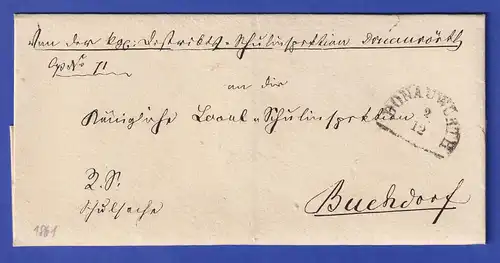 Von der kgl: Distrikts-Schulinspektion Donauwörth
an die
Königliche Local-Schulinspektion
DONAUWÖRTH
2
12
R. S.
Schulsache
Buchdorf
1861